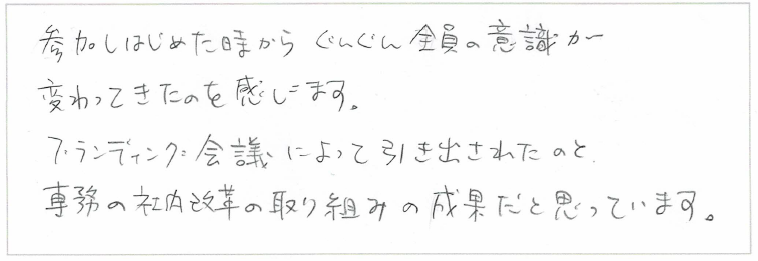 参加しはじめた時からぐんぐん全員の意識が
変わってきたのを感じます。
ブランディング会議によって引き出されたのと
専務の社内改革の取り組みの成果だと思っています。